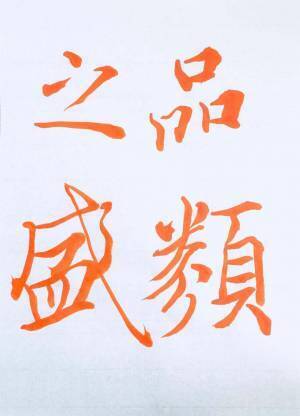 品類
之盛